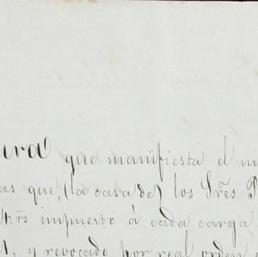 ura que manifiesta el m
as que, (la casa de) los Sres. P
4 rs impuesto á cada carga
1, y revocado por real orden